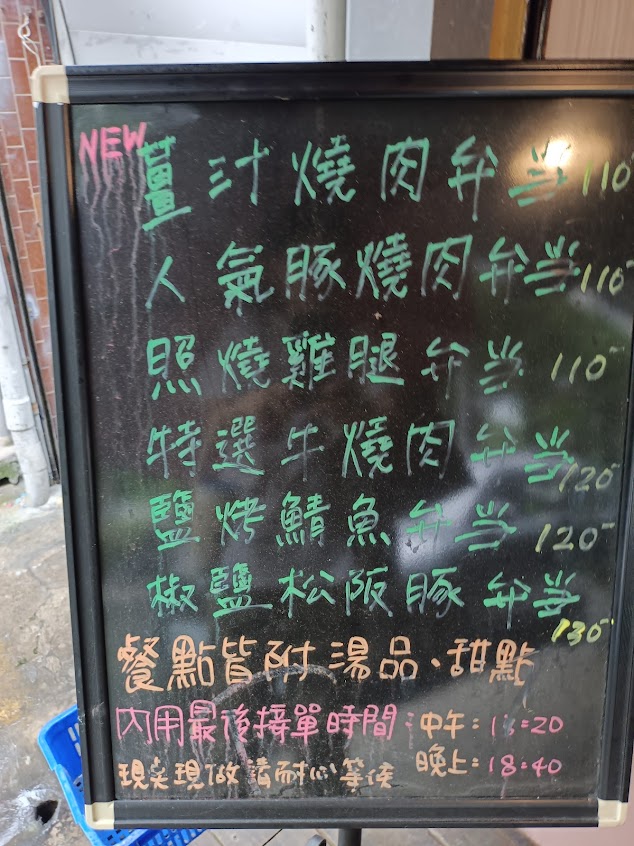 NEW 薑汁燒肉弁当 110
人氣豚燒肉弁当 110
照燒雞腿弁当 110
特選牛燒肉弁当 120
鹽烤鯖魚弁当 120
椒鹽松阪豚弁当 130
餐點皆附湯品、甜點
內用最後接單時間:中午:20
現点現做請耐心等候 晚上:18:40